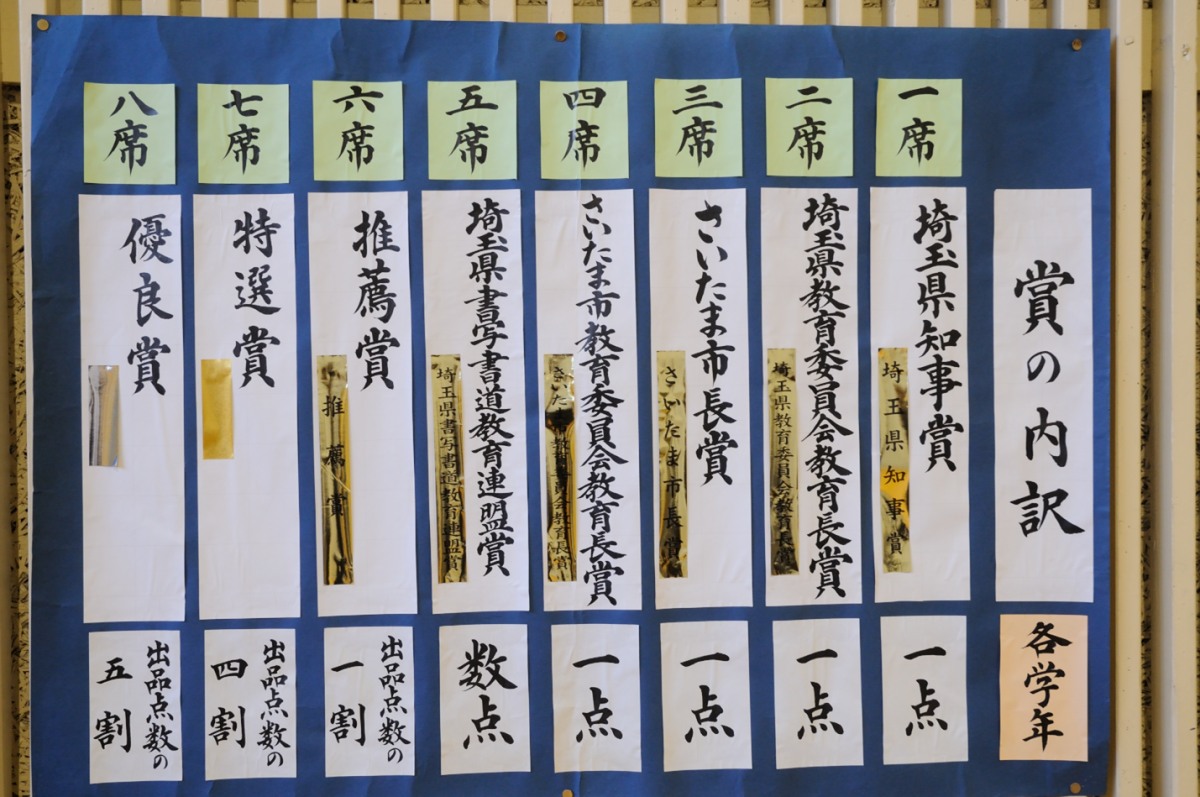 賞の内訳
各学年
一席
埼玉県知事賞
埼玉県知事賞
一点
二席
埼玉県教育委員会教育長賞
埼玉県教育委員会教育長賞
一点
三席
さいたま市長賞
さいたま市長賞
一点
四席
さいたま市教育委員会教育長賞
さいたま市教育委員会教育長賞
一点
五席
埼玉県書写書道教育連盟賞
埼玉県書写書道教育連盟賞
数点
六席
推薦賞
推薦賞
出品点数の
一割
七席
特選賞
出品点数の
四割
八席
優良賞
出品点数の
五割